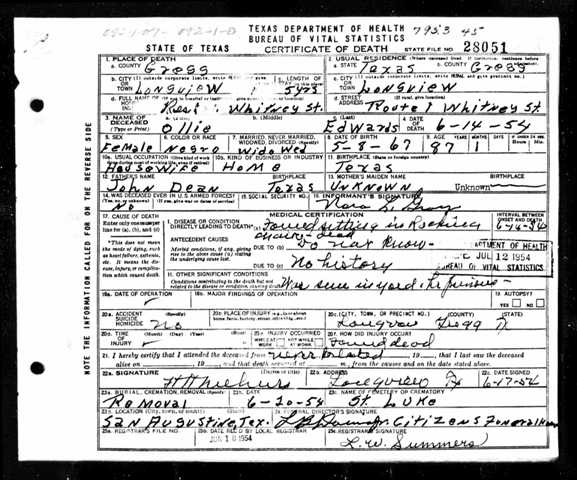 TEXAS DEPARTMENT OF HEALTH
BUREAU OF VITAL STATISTICS
7953 45
STATE OF TEXAS
CERTIFICATE OF DEATH
STATE FILE NO. 28051
1. PLACE OF DEATH
a. COUNTY Gregg
2. USUAL RESIDENCE
a. STATE Texas
b. COUNTY Gregg
b. CITY OR TOWN Longview
c. LENGTH OF STAY 5 yrs
c. CITY OR TOWN Longview
Route 1 Whitney St.
d. STREET ADDRESS Route 1 Whitney St
3. NAME OF DECEASED (Type or Print)
a. (First) Ollie
b. (Middle)
c. (Last) Edwards
4. DATE OF DEATH 6-14-54
5. SEX Female
6. COLOR OR RACE Negro
7. MARRIED, NEVER MARRIED, WIDOWED, DIVORCED (Specify) Widowed
8. DATE OF BIRTH 5-8-67
9. AGE YEARS 87 MONTHS 1
10a. USUAL OCCUPATION Housewife
10b. KIND OF BUSINESS OR INDUSTRY Home
11. BIRTHPLACE Texas
12. FATHER'S NAME John Dean
BIRTHPLACE Texas
13. MOTHER'S MAIDEN NAME Unknown
BIRTHPLACE Unknown
14. WAS DECEASED EVER IN U.S. ARMED FORCES? No
15. SOCIAL SECURITY NO.
16. INFORMANT'S SIGNATURE
17. CAUSE OF DEATH
Enter only one cause per line for (a), (b), and (c)
MEDICAL CERTIFICATION
INTERVAL BETWEEN ONSET AND DEATH
I. DISEASE OR CONDITION DIRECTLY LEADING TO DEATH (a) Found sitting in Rocking chair - dead
6-14-54
*This does not mean the mode of dying, such as heart failure, asthenia, etc. It means the disease, injury, or complication which caused death.
ANTECEDENT CAUSES
Morbid conditions, if any, giving rise to the above cause (a) stating the underlying cause last.
DUE TO (b) Do not know
DUE TO (c) No history
DEPARTMENT OF HEALTH
JUL 12 1954
BUREAU OF VITAL STATISTICS
II. OTHER SIGNIFICANT CONDITIONS
Conditions contributing to the death but not related to the disease or condition causing death.
Was seen in yard
18a. DATE OF OPERATION
18b. MAJOR FINDINGS OF OPERATION
19. AUTOPSY? YES NO
20a. ACCIDENT SUICIDE HOMICIDE No
20b. PLACE OF INJURY
20c. (CITY, TOWN, OR PRECINCT NO.) (COUNTY) (STATE) Longview Gregg
20d. TIME OF INJURY
20e. INJURY OCCURRED WHILE AT WORK NOT WHILE AT WORK
20f. HOW DID INJURY OCCUR? Found dead
21. I hereby certify that I attended the deceased from never treated 19 , that I last saw the deceased
alive on 19 , and that death occurred at m., from the causes and on the date stated above.
22a. SIGNATURE
22b. ADDRESS Longview Tx
22c. DATE SIGNED 6-17-54
23a. BURIAL, CREMATION, REMOVAL (Specify) Removal
23b. DATE 6-20-54
23c. NAME OF CEMETERY OR CREMATORY St. Luke
23d. LOCATION San Augustine, Tex.
24. FUNERAL DIRECTOR'S SIGNATURE Citizens Funeral Home
25a. REGISTRAR'S FILE NO.
25b. DATE REC'D BY LOCAL REGISTRAR JUN 18 1954
25c. REGISTRAR'S SIGNATURE L. W. Summers
NOTE THE INFORMATION CALLED FOR ON THE REVERSE SIDE